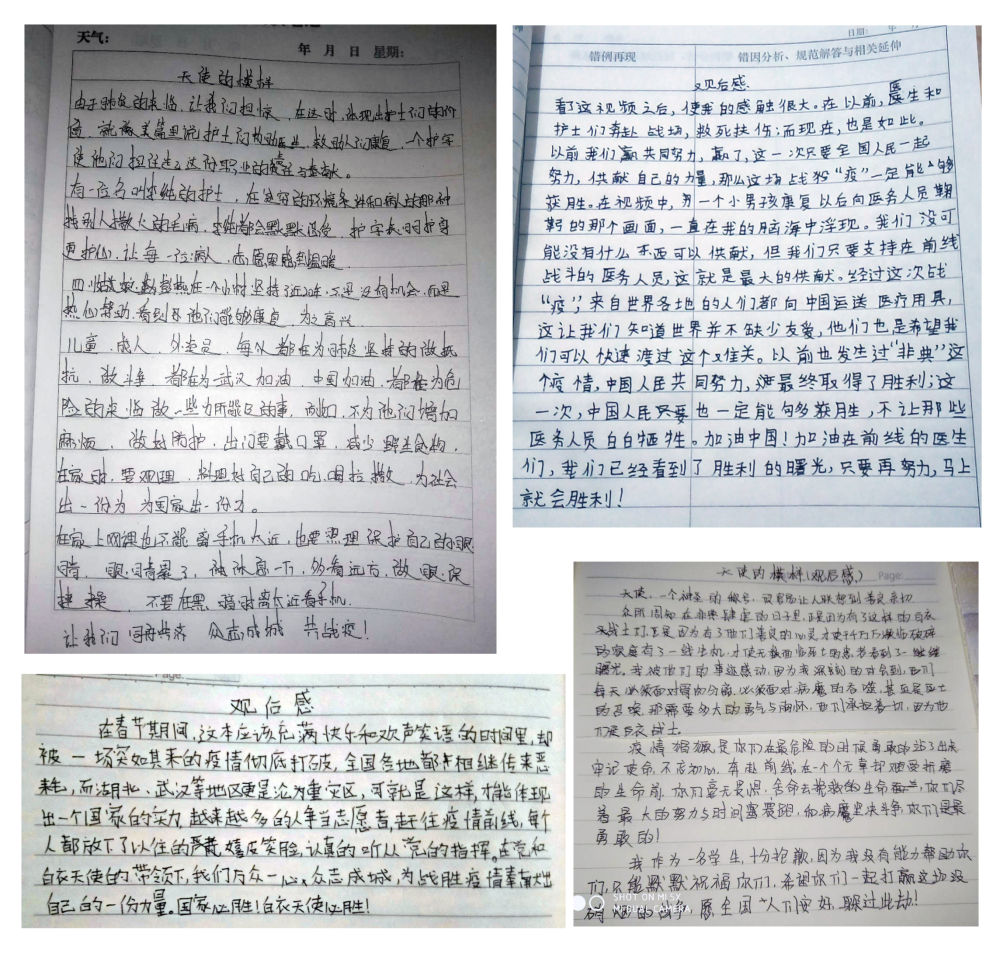 天气：
年 月 日 星期：
天使的模样
由于肺炎的来临，让我们担惊，在这时，体现出护士们的价
值，就被美誉
使他们担任起这份职业的责任与奉献。
有一位名叫 的护士，在
更护心，让每一位病人，都愿里感到温暖
四 在一个小村坚持了近 年，不是没有机会，而是
热心帮助，看到 他们能够康复，为之高兴
儿童、成人、外卖员，每人都在为肺炎坚持的做抵
抗，做斗争，都在为武汉加油，中国加油，都在为危
险的来临做一些力所能及的事，而如，不为他们增加
麻烦，做好防护，出门要戴口罩，减少野生食物，
在家时，要观理，料理好自己的吃、喝拉撒，为社会
出一份力 为国家出一份力。
在家上网课也不能离手机太近，也要照理保护自己的眼
睛，眼睛累了，就休息一下，多看远方，做眼保
健操，不要在黑 离太近看手机
让我们 同舟共济 众志成城 共战疫！
日期： 年
错例再现 错因分析、规范解答与相关延伸
观后感
看了这视频之后，使我的感触很大。在以前，医生和
护士们奔赴战场，救死扶伤；而现在，也是如此。
以前我们赢共同努力，赢了，这一次只要全国人民一起
努力，供献自己的力量，那么这场战役“疫”一定能够
获胜。在视频中，另一个小男孩康复以后向医务人员鞠
躬的那个画面，一直在我的脑海中浮现。我们没可
能没有什么东西可以供献，但我们只要支持在前线
战斗的医务人员，这就是最大的供献。经过这次战
“疫”，来自世界各地的人们都向中国运送医疗用具，
这让我们知道世界并不缺少友爱，他们也是希望我
们可以快速渡过这个难关。以前也发生过“非典”这
个疫情，中国人民共同努力，最终取得了胜利；这
一次，中国人民只要也一定能够多获胜，不让那些
医务人员白白牺牲。加油中国！加油在前线的医生
们，我们已经看到了胜利的曙光，只要再努力，马上
就会胜利！
Page:
观后感
在春节期间，这本应该充满快乐和欢声笑语的时间里，却
被一场突如其来的疫情彻底打破，全国各地都相继传来恶
耗，而湖北、武汉等地区更是沦为重灾区，可就是这样，才能体现
出一个国家的实力，越来越多的人争当志愿者，赶往疫情前线，每个
人都放下了以往的嬉皮笑脸，认真的听从党的指挥。在党和
白衣天使的带领下，我们万众一心、众志成城，为战胜疫情奉献出
自己的一份力量。国家必胜！白衣天使必胜！
天使的模样（观后感） Page:
天使，一个神圣的称号，很容易让人联想到善良亲切
众所周知在非典肆虐的日子里，正是因为有了这样的白衣
战士们，正是因为有了他们善良的心灵，才使千千万万濒临破碎
的家庭有了一线生机，才使无数面临死亡的患者看到了一继继
曙光。我被他们的事迹感动，因为我深刻的体会到，他们
每天必须面对胃肉分离，必须面对病魔的吞噬，甚至是死亡
的召唤，那需要多大的勇气与胸怀，他们承担着一切，因为他
们是白衣战士。
疫情猖獗是你们在最危险的时候勇敢的站了出来
牢记使命，不忘初心，奔赴前线。在一个个无辜却遭受折磨
的生命前，你们毫无畏惧，舍命去拯救的生命，你们尽
着最大的努力与时间赛跑，和病魔坚决斗争，你们是最
勇敢的！
我作为一名学生，十分抱歉，因为我没有能力帮助你
们，只能默默祝福你们，希望你们一起打赢这场没
硝烟的战争，愿全国人们安好，躲过此劫！
SHOT ON MI 5X
MI DUAL CAMERA